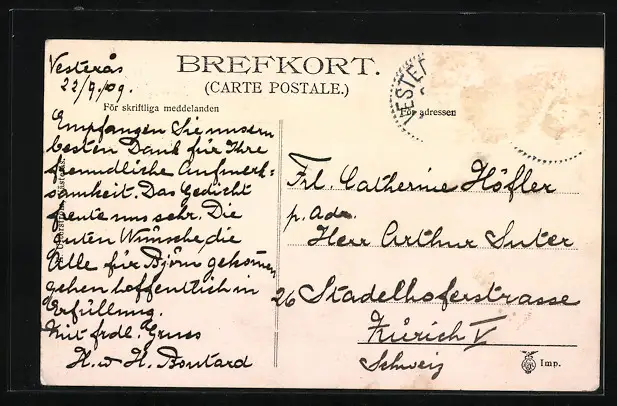 BREFKORT.
(CARTE POSTALE.)
För skriftliga meddelanden
För adressen
VESTER
Vesterås
22/9.09.
Empfangen Sie unsern
besten Dank für Ihre
freundliche Aufmerk=
samkeit. Das Gedicht
freute uns sehr. Die
guten Wünsche, die
Alle für Björn gekommen,
gehen hoffentlich in
Erfüllung.
Mit frdl. Gruss
H. u H. Boutard
Frl. Catherine Höfler
p. Adr.
Herr Arthur Suter
26 Stadelhoferstrasse
Zürich V
Schweiz
Imp.